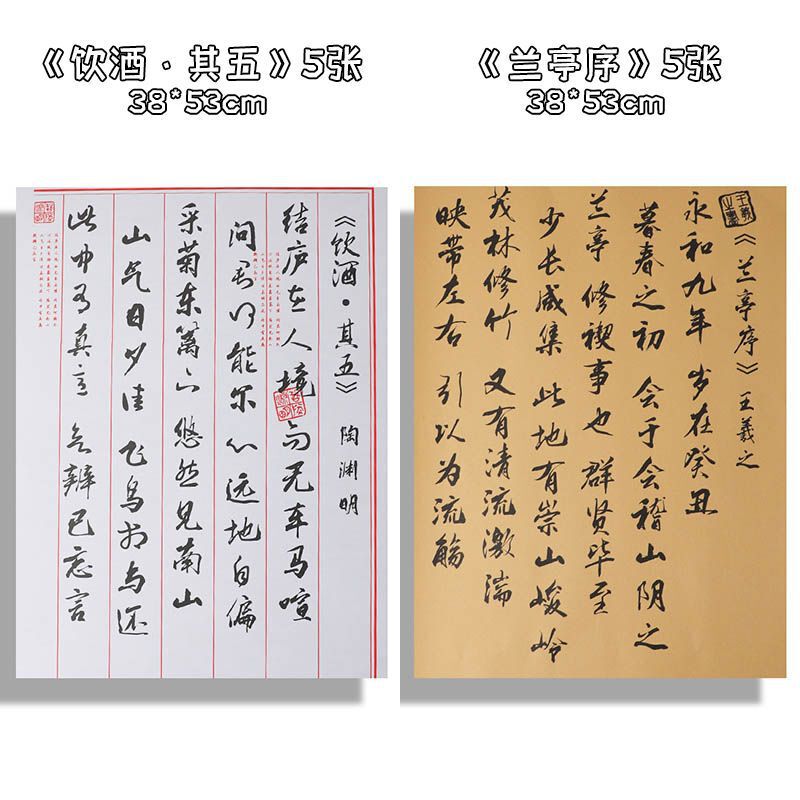 《饮酒·其五》5张
38*53cm
《饮酒·其五》 陶渊明
结庐在人境 而无车马喧
问君何能尔 心远地自偏
采菊东篱下 悠然见南山
山气日夕佳 飞鸟相与还
此中有真意 欲辨已忘言
《兰亭序》5张
38*53cm
《兰亭序》王羲之
永和九年 岁在癸丑
暮春之初 会于会稽山阴之
兰亭 修禊事也 群贤毕至
少长咸集 此地有崇山峻岭
茂林修竹 又有清流激湍
映带左右 引以为流觞